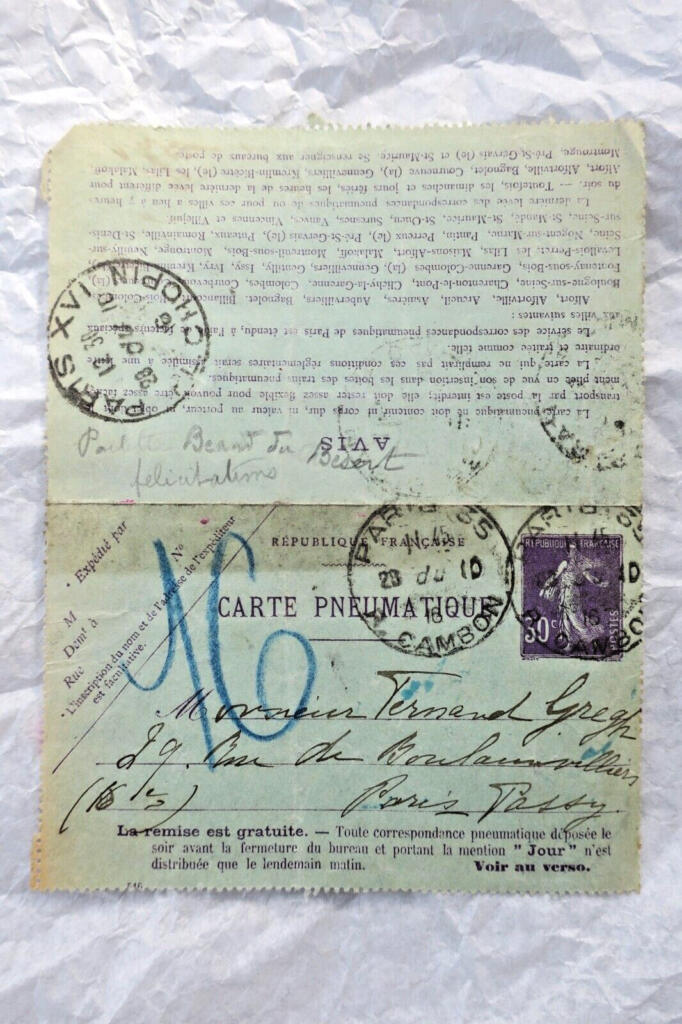 AVIS
La carte pneumatique ne doit contenir ni corps dur, ni valeur au porteur, ni objet
transport par la poste est interdit; elle doit rester assez flexible pour pouvoir être assez
ment pliée en vue de son insertion dans les boîtes des trains pneumatiques.
La carte qui ne remplirait pas ces conditions réglementaires serait assimilée à une lettre
ordinaire et traitée comme telle.
Le service des correspondances pneumatiques de Paris est étendu, à l'aide de facteurs spéciaux
aux villes suivantes :
Alfort, Alfortville, Arcueil, Asnières, Aubervilliers, Bagnolet, Billancourt,
Boulogne-sur-Seine, Charenton-le-Pont, Clichy-la-Garenne, Colombes, Courbevoie,
Fontenay-sous-Bois, Garenne-Colombes (la), Gennevilliers, Gentilly, Issy, Ivry, Kremlin
Levallois-Perret, les Lilas, Maisons-Alfort, Malakoff, Montreuil-sous-Bois, Montrouge, Neuilly-sur-
Seine, Nogent-sur-Marne, Pantin, Perreux (le), Pré-St-Gervais (le), Puteaux, Romainville, St-Denis-
sur-Seine, St-Mandé, St-Maurice, St-Ouen, Suresnes, Vanves, Vincennes et Villejuif.
La dernière levée des correspondances pneumatiques de ou pour ces villes a lieu à 7 heures
du soir. — Toutefois, les dimanches et jours fériés, les heures de la dernière levée diffèrent pour
Alfort, Alfortville, Bagnolet, Courneuve (la), Gennevilliers, Kremlin-Bicêtre (le), les Lilas, Malakoff,
Montrouge, Pré-St-Gervais (le) et St-Maurice. Se renseigner aux bureaux de poste.
PARIS XVI
CHOPIN
félicitations
Expédié par
M
Demt à
Rue
No
L'inscription du nom et de l'adresse de l'expéditeur
est facultative.
RÉPUBLIQUE FRANÇAISE
CARTE PNEUMATIQUE
16
PARIS 35
11 45
R. CAMBON
REPUBLIQUE FRANÇAISE
30 c
POSTES
Monsieur Fernand Gregh
29. Rue de Boulainvilliers
(16 e) Paris Passy.
La remise est gratuite. — Toute correspondance pneumatique déposée le
soir avant la fermeture du bureau et portant la mention " Jour " n'est
distribuée que le lendemain matin. Voir au verso.